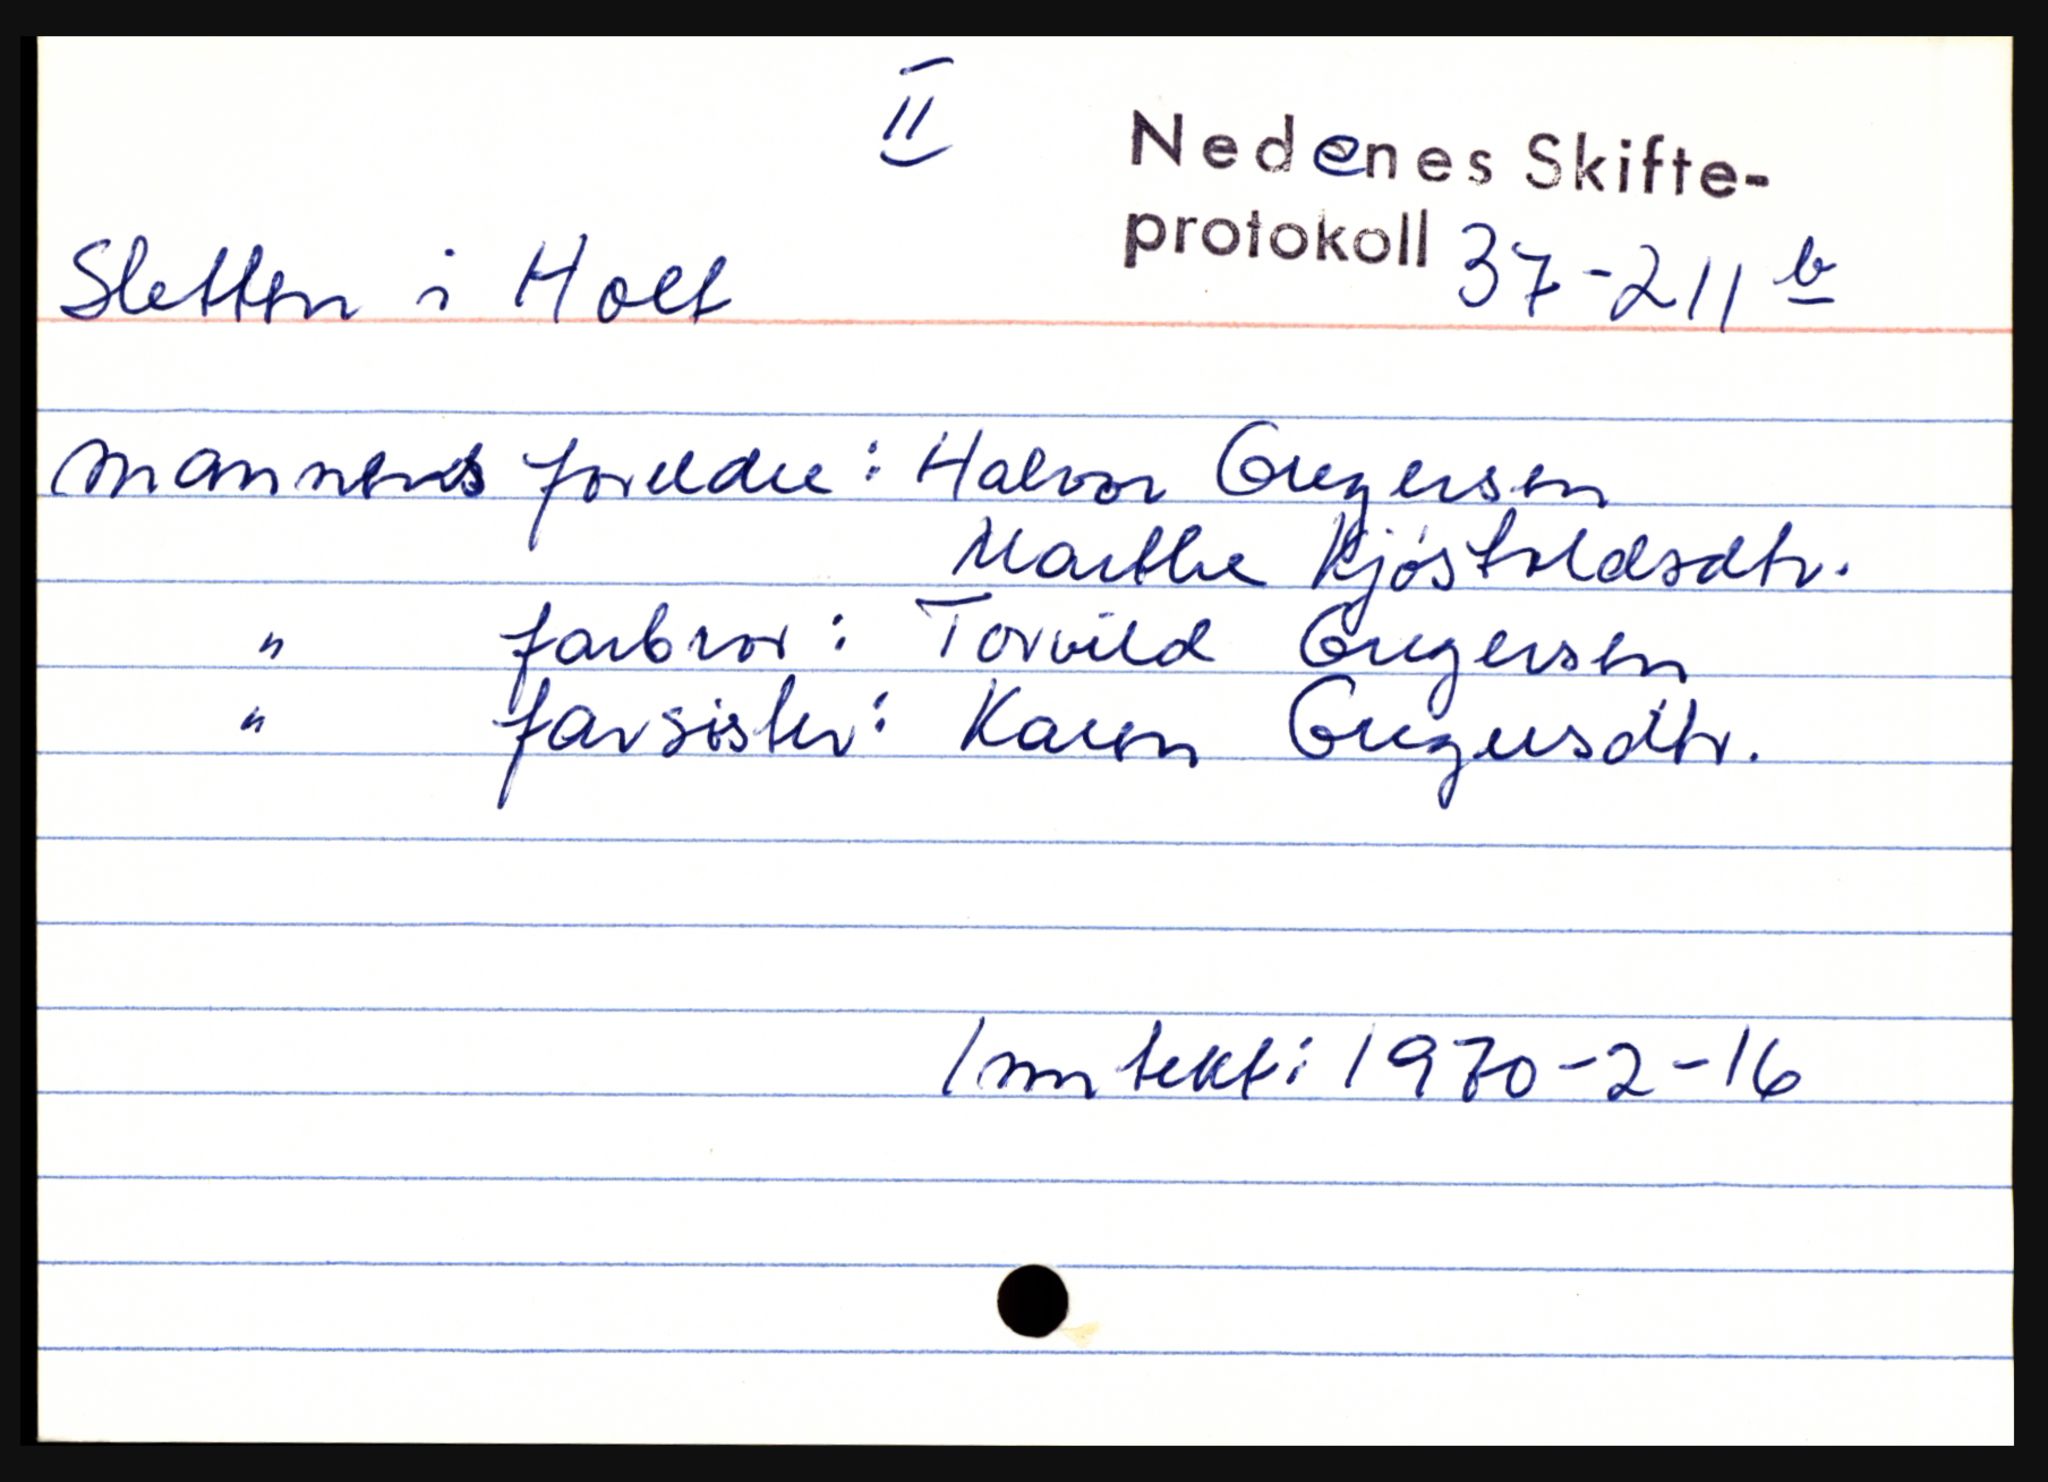 II
Nedenes Skifte-
protokoll 37-211 b
Sletten i Holt
Mannens foreldre: Halvor Gregersen
Marthe Kjøstvldsdtr.
" farbror: Torvild Gregersen
" farsister: Karen Gregersdtr.
Inntekt: 1970-2-16